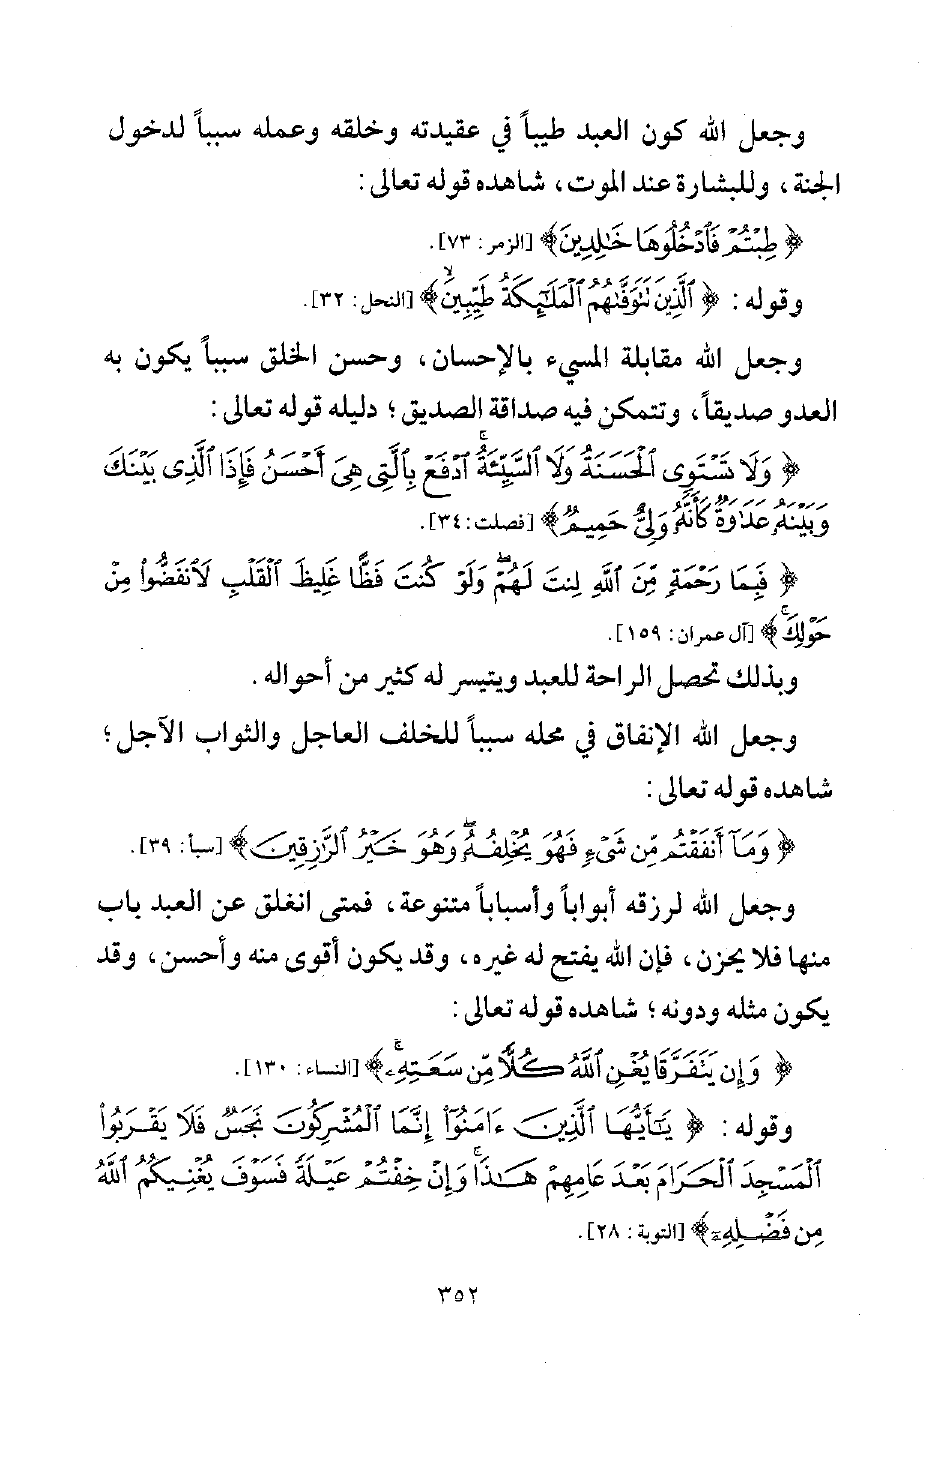 وجعل الله كون العبد طيباً في عقيدته وخلقه وعمله سبباً لدخول
الجنة، وللبشارة عند الموت، شاهده قوله تعالى:
﴿ طِبْتُمْ فَٱدْخُلُوهَا خَٰلِدِينَ﴾ [الزمر: ٧٣].
وقوله: ﴿ ٱلَّذِينَ تَتَوَفَّىٰهُمُ ٱلْمَلَٰٓئِكَةُ طَيِّبِينَ ۙ﴾ [النحل: ٣٢].
وجعل الله مقابلة المسيء بالإحسان، وحسن الخلق سبباً يكون به
العدو صديقاً، وتتمكن فيه صداقة الصديق؛ دليله قوله تعالى:
﴿ وَلَا تَسْتَوِى ٱلْحَسَنَةُ وَلَا ٱلسَّيِّئَةُ ۚ ٱدْفَعْ بِٱلَّتِى هِىَ أَحْسَنُ فَإِذَا ٱلَّذِى بَيْنَكَ
وَبَيْنَهُۥ عَدَٰوَةٌ كَأَنَّهُۥ وَلِىٌّ حَمِيمٌ﴾ [فصلت: ٣٤].
﴿ فَبِمَا رَحْمَةٍ مِّنَ ٱللَّهِ لِنتَ لَهُمْ ۖ وَلَوْ كُنتَ فَظًّا غَلِيظَ ٱلْقَلْبِ لَٱنفَضُّوا۟ مِنْ
حَوْلِكَ ۚ﴾ [آل عمران: ١٥٩].
وبذلك تحصل الراحة للعبد ويتيسر له كثير من أحواله.
وجعل الله الإنفاق في محله سبباً للخلف العاجل والثواب الآجل؛
شاهده قوله تعالى:
﴿ وَمَآ أَنفَقْتُم مِّن شَىْءٍ فَهُوَ يُخْلِفُهُۥ ۖ وَهُوَ خَيْرُ ٱلرَّٰزِقِينَ﴾ [سبأ: ٣٩].
وجعل الله لرزقه أبواباً وأسباباً متنوعة، فمتى انغلق عن العبد باب
منها فلا يحزن، فإن الله يفتح له غيره، وقد يكون أقوى منه وأحسن، وقد
يكون مثله ودونه؛ شاهده قوله تعالى:
﴿ وَإِن يَتَفَرَّقَا يُغْنِ ٱللَّهُ كُلًّا مِّن سَعَتِهِۦ ۚ﴾ [النساء: ١٣٠].
وقوله: ﴿ يَٰٓأَيُّهَا ٱلَّذِينَ ءَامَنُوٓا۟ إِنَّمَا ٱلْمُشْرِكُونَ نَجَسٌ فَلَا يَقْرَبُوا۟
ٱلْمَسْجِدَ ٱلْحَرَامَ بَعْدَ عَامِهِمْ هَٰذَا ۚ وَإِنْ خِفْتُمْ عَيْلَةً فَسَوْفَ يُغْنِيكُمُ ٱللَّهُ
مِن فَضْلِهِۦٓ﴾ [التوبة: ٢٨].
٣٥٢